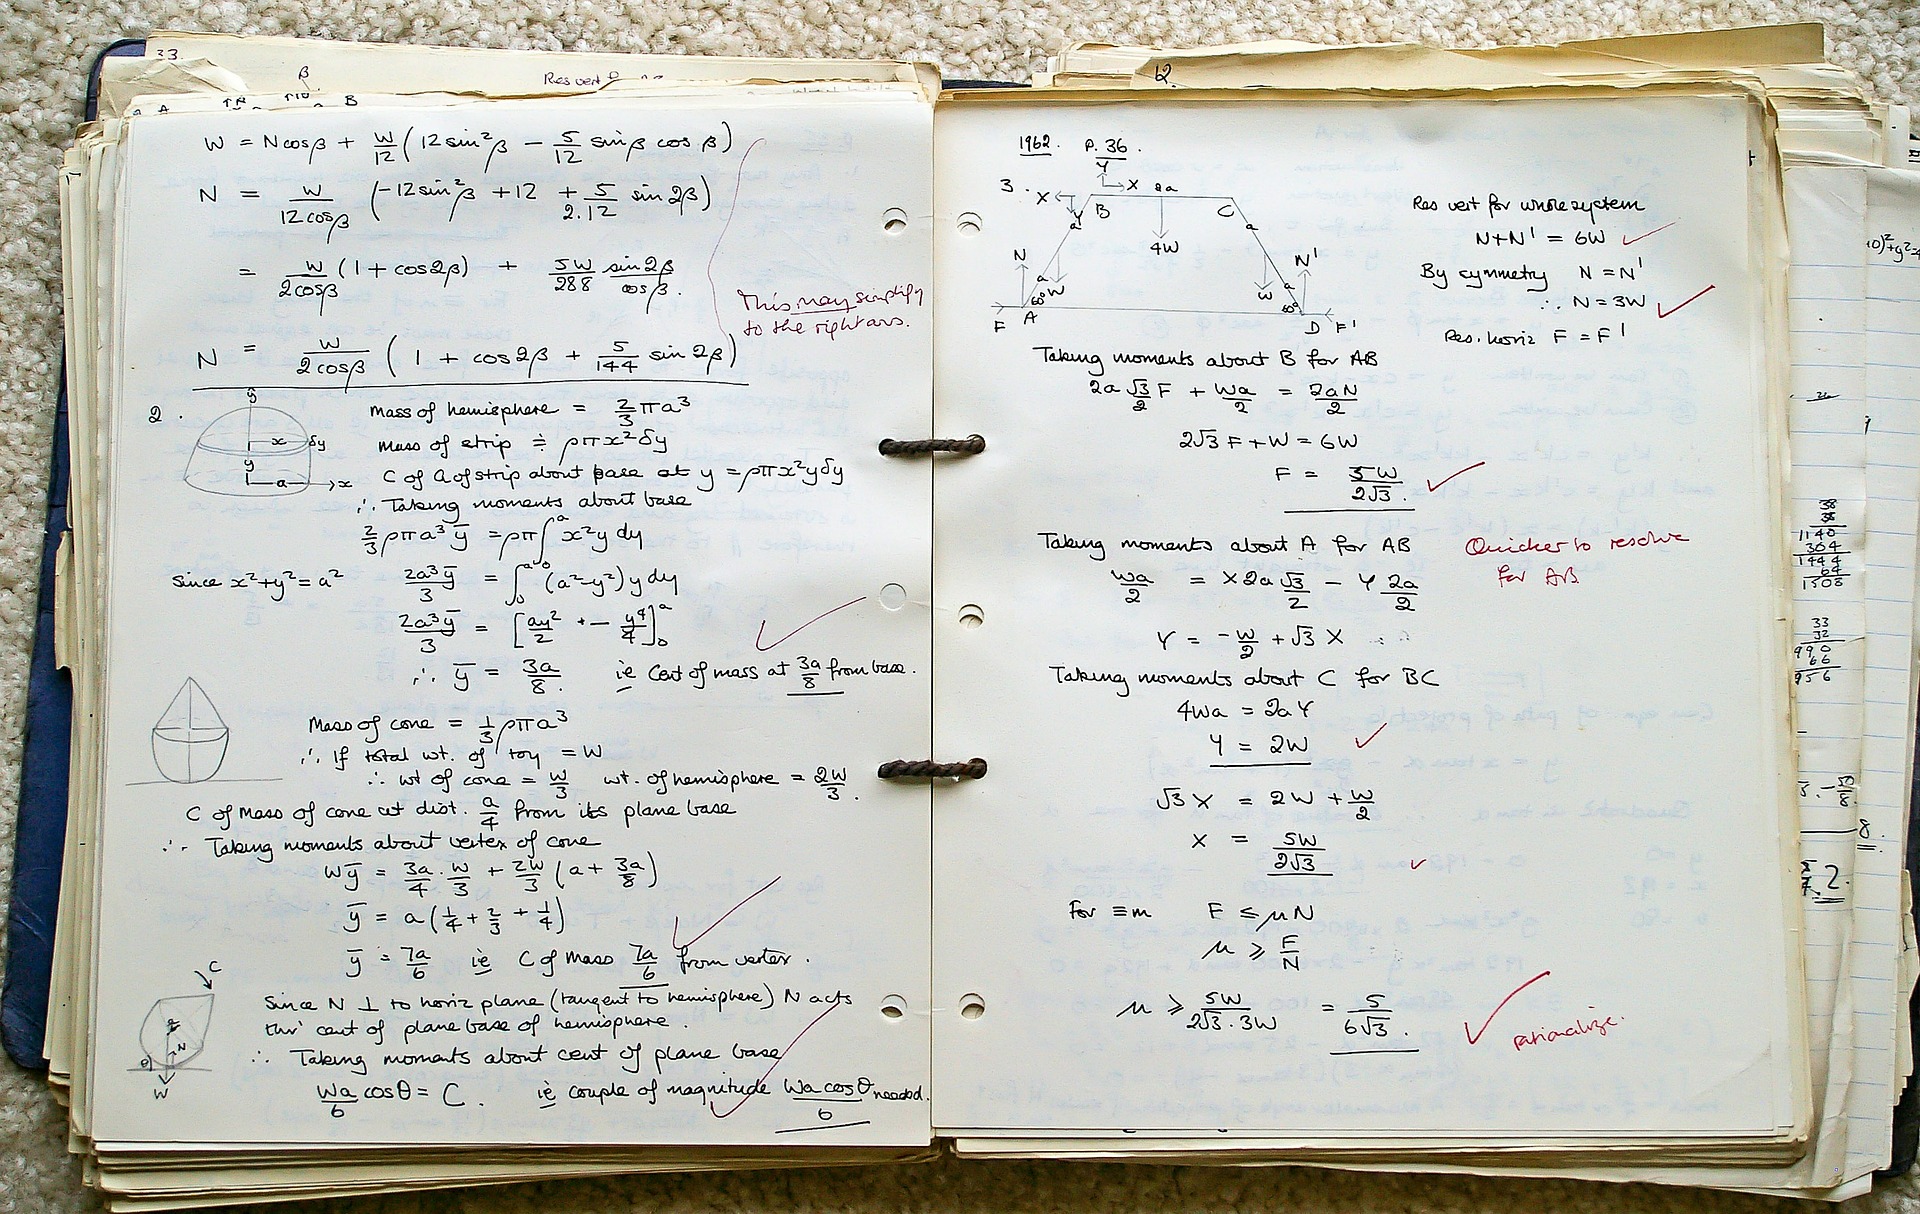 33.
β
Res vert
A
B
W = N cosβ + W/12 (12 sin²β − 5/12 sinβ cos β)
N = W/12cosβ (−12sin²β + 12 + 5/2.12 sin 2β)
= W/2cosβ (1 + cos2β) + 5W/288 sin2β/cosβ.
This may simplify
to the right ans.
N = W/2cosβ (1 + cos2β + 5/144 sin 2β)
2.
y
x
δy
y
a
x
Mass of hemisphere = 2/3 πa³
Mass of strip ≑ ρπx²δy
C of G of strip about base at y = ρπx²yδy
∴ Taking moments about base
2/3 ρπa³ȳ = ρπ∫ᵃx²y dy
since x²+y²=a² 2a³ȳ/3 = ∫₀ᵃ (a²−y²) y dy
2a³ȳ/3 = [ay²/2 − y⁴/4]₀ᵃ
∴ ȳ = 3a/8. ie Cent of mass at 3a/8 from base.
Mass of cone = 1/3 ρπa³
∴ If total wt. of toy = W
∴ wt of cone = W/3 wt. of hemisphere = 2W/3.
C of Mass of cone at dist. a/4 from its plane base
∴ Taking moments about vertex of cone
Wȳ = 3a/4 . W/3 + 2W/3 (a + 3a/8)
ȳ = a(1/4 + 2/3 + 1/4)
ȳ = 7a/6 ie C of Mass 7a/6 from vertex.
C
N
θ
W
Since N ⊥ to horiz plane (tangent to hemisphere) N acts
thr' cent of plane base of hemisphere.
∴ Taking moments about cent of plane base
Wa/6 cosθ = C. ie couple of magnitude Wa cosθ/6 needed.
12
1962. P. 36.
3.
Y
X
X
2a
B
C
Y
a
a
4W
N
N'
a
W
W
a
60°
60°
F
A
D
F'
Res vert for whole system
N+N' = 6W
By symmetry N = N'
∴ N = 3W
Res. horiz F = F'
Taking moments about B for AB
2a √3/2 F + Wa/2 = 2aN/2
2√3 F + W = 6W
F = 5W/2√3.
Taking moments about A for AB
Quicker to resolve
for AB
Wa/2 = X 2a √3/2 − Y 2a/2
Y = −W/2 + √3 X
Taking moments about C for BC
4Wa = 2aY
Y = 2W
√3 X = 2W + W/2
X = 5W/2√3
For ≡m F ≤ μN
μ ≥ F/N
μ ≥ 5W/2√3 . 3W = 5/6√3.
rationalize.
38
38
1140
304
1444
64
1508
33
32
990
66
956
8.
2.